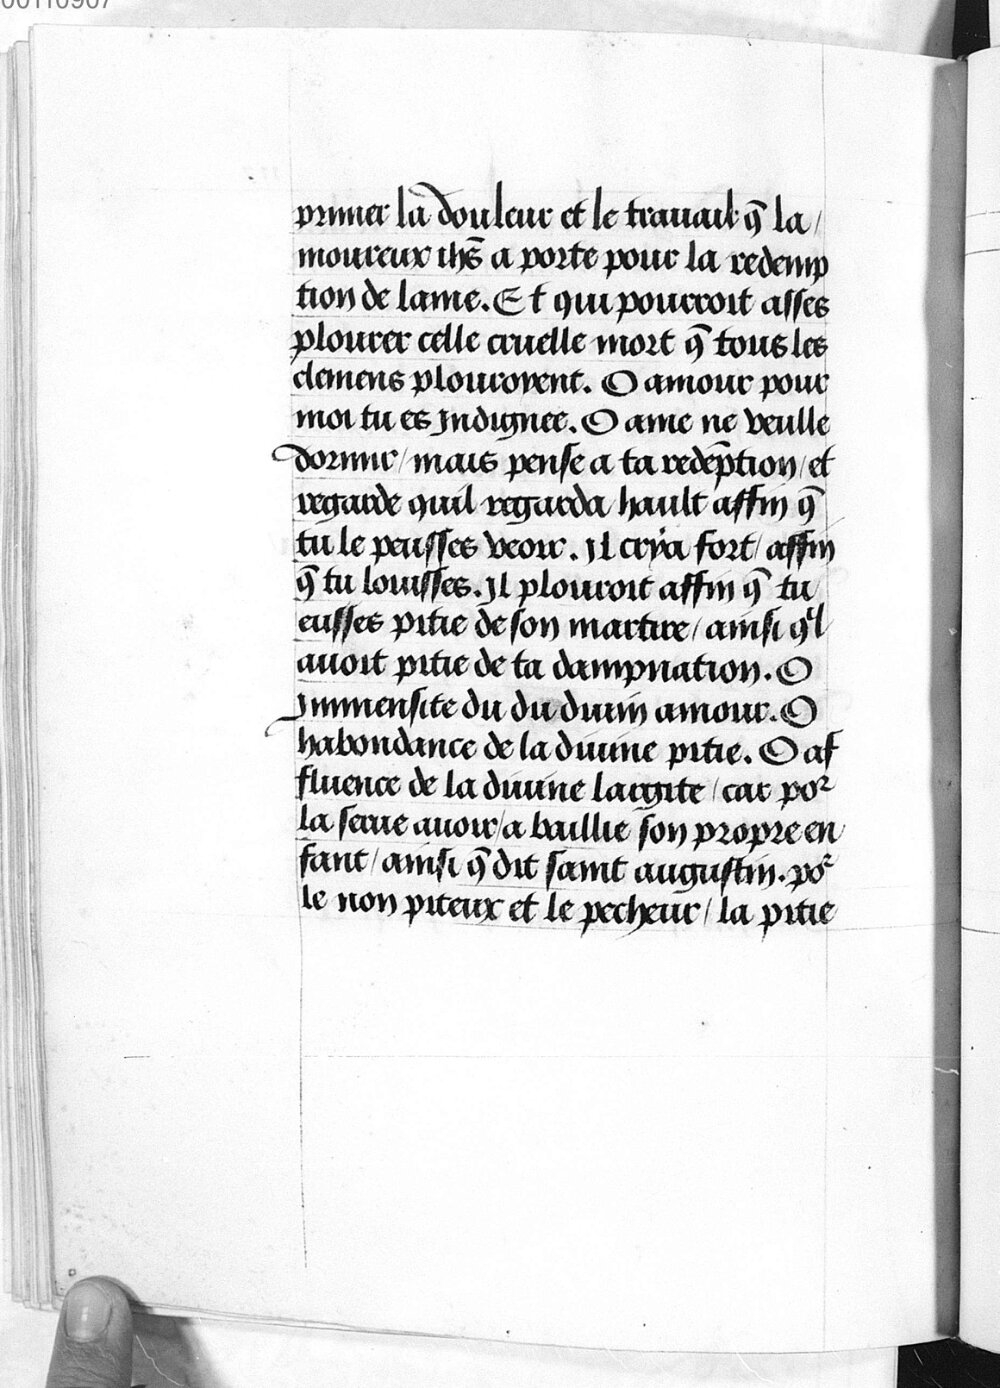 00110907
primer la douleur et le trauail q̄ la/
moureux ihs̄ a porte pour la redemp
tion de lame. Et qui pourroit asses
plourer celle cruelle mort q̄ tous les
elemens plouroyent. O amour pour
moi tu es Jndignee. O ame ne veulle
dormir/ mais pense a ta redēption/ et
regarde quil regarda hault affin q̄
tu le peusses veoir. Jl crya fort/ affin
q̄ tu louisses. Jl plouroit affin q̄ tu
eusses pitie de son martire/ ainsi qͥl
auoit pitie de ta dampnation. O
Jmmensite du du diuin amour. O
habondance de la diuine pitie. O af
fluence de la diuine largite/ car poʳ
la serue auoir/ a baillie son propre en
fant/ ainsi q̄ dit saint augustin. poʳ
le non piteux et le pecheur/ la pitie